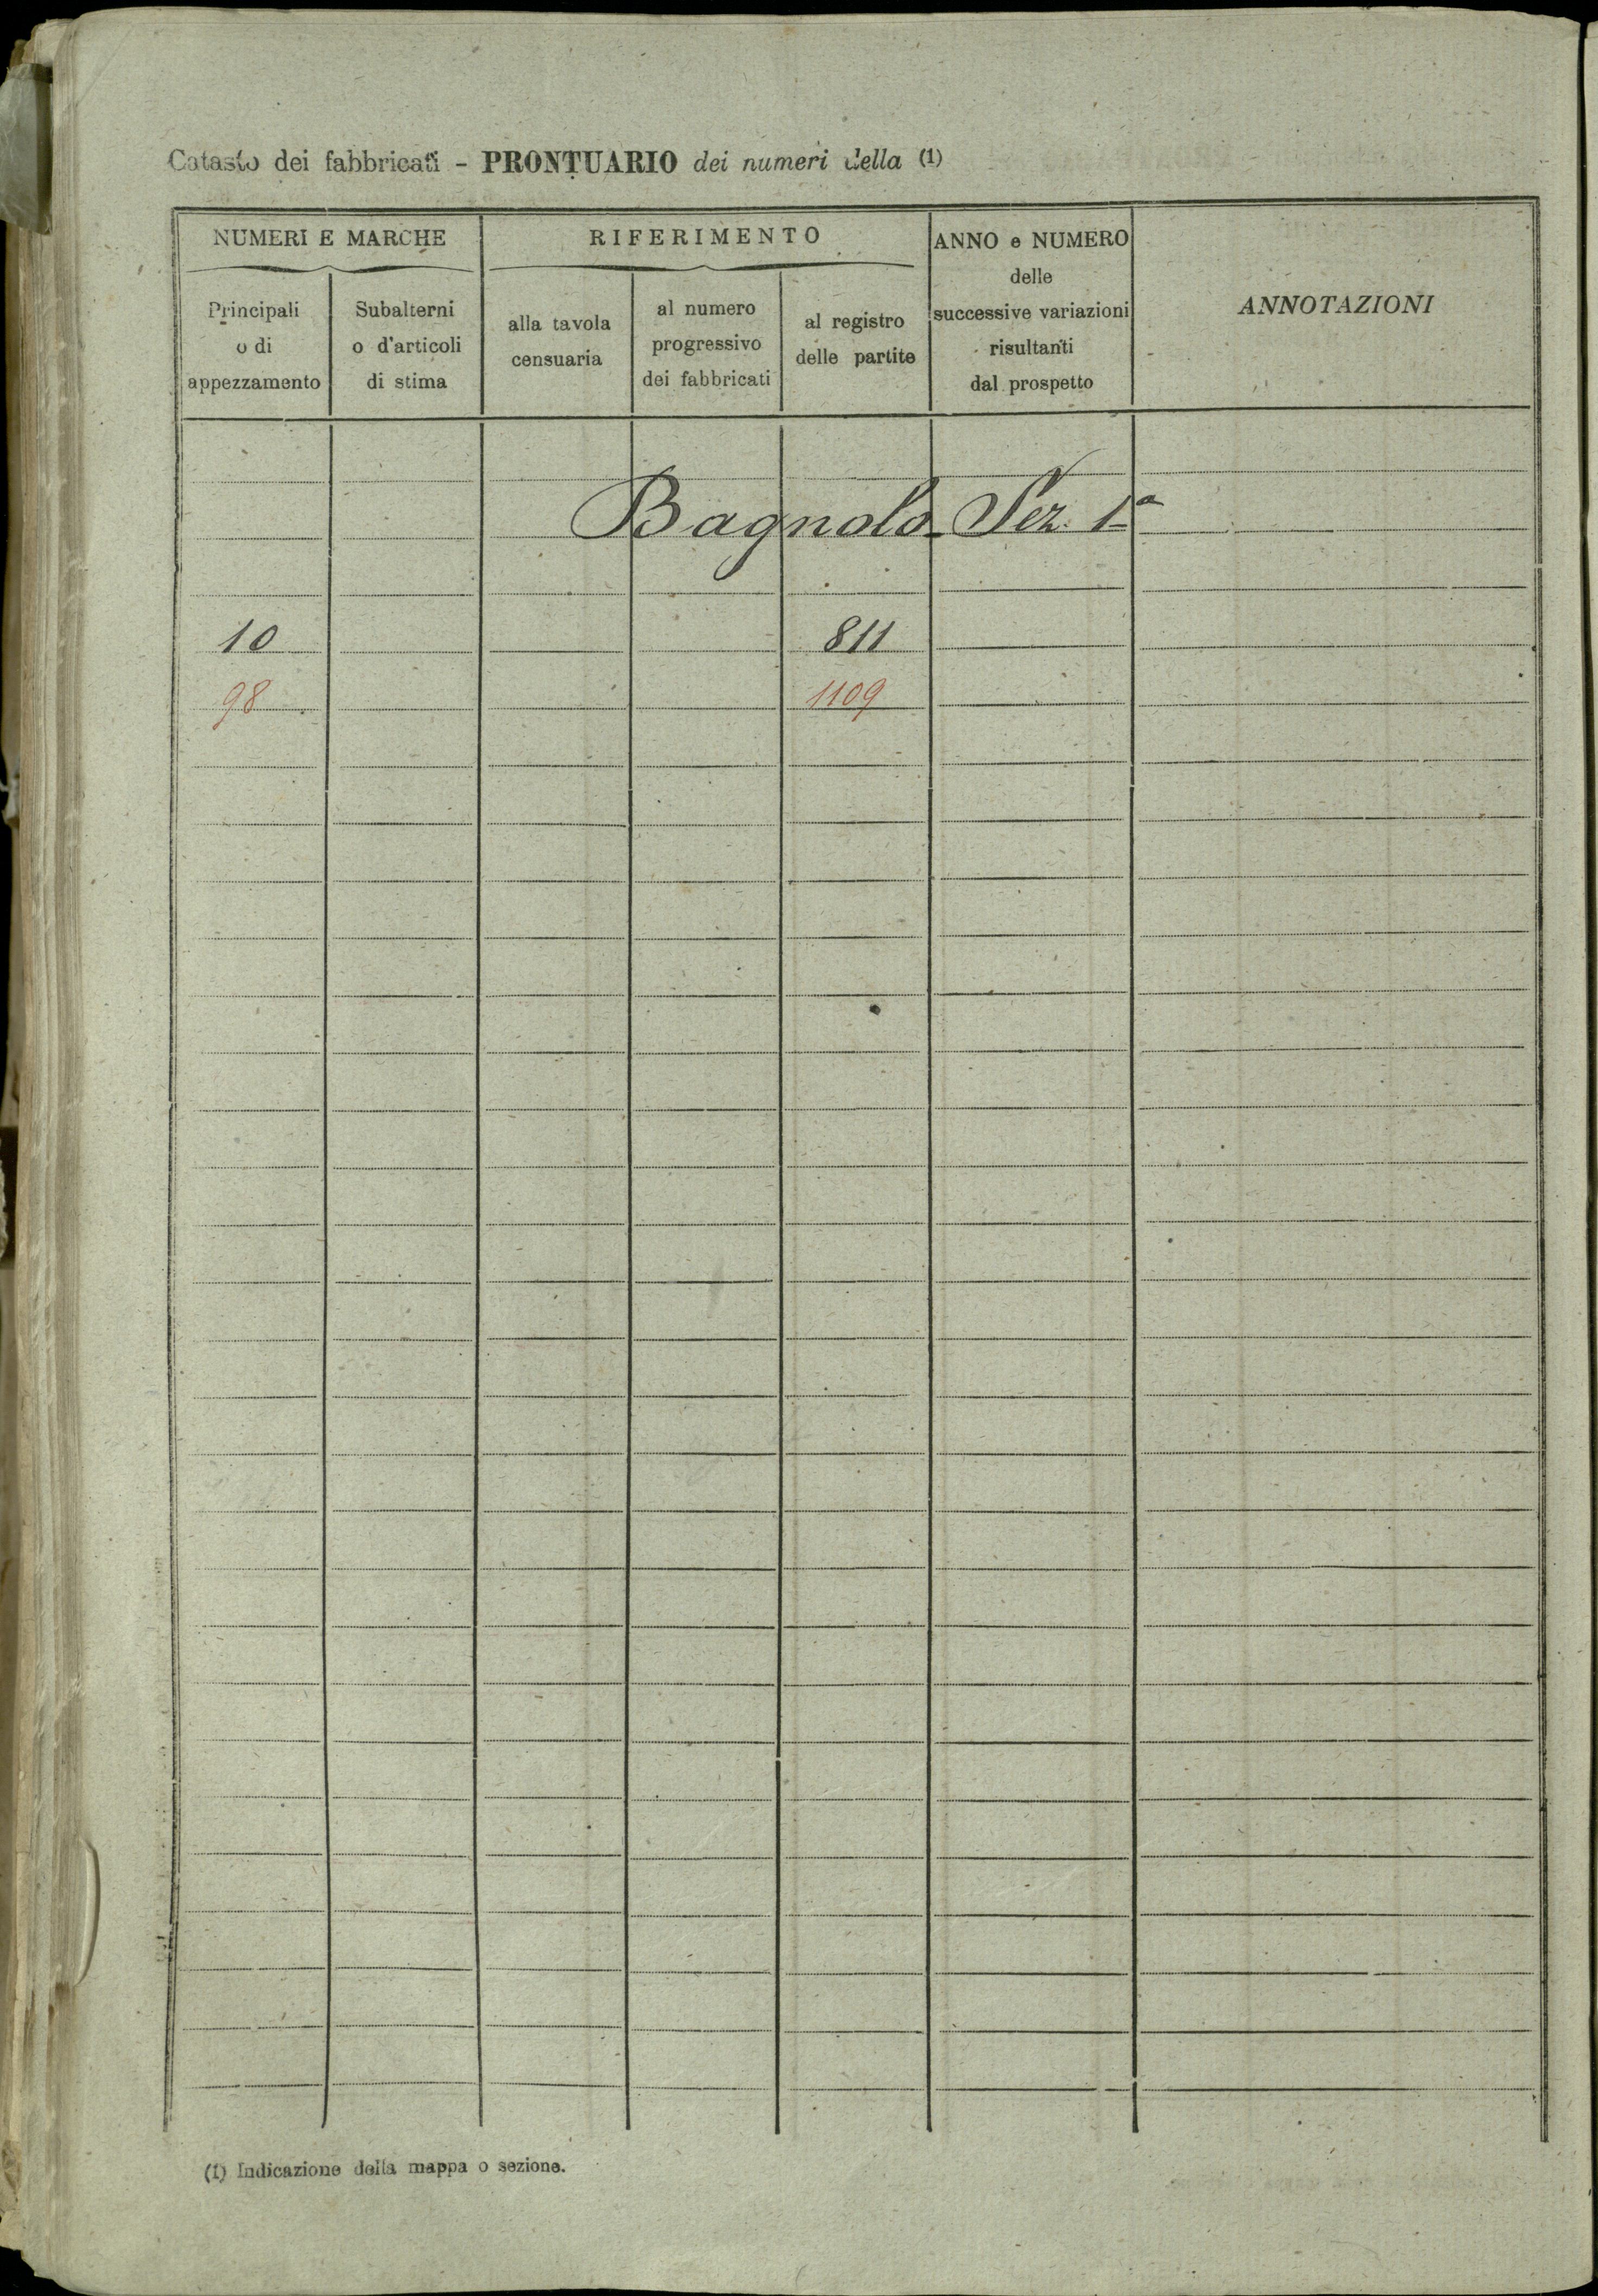 Catasto dei fabbricati - PRONTUARIO dei numeri della (1)
NUMERI E MARCHE
RIFERIMENTO
ANNO e NUMERO
delle
successive variazioni
risultanti
dal prospetto
ANNOTAZIONI
Principali
o di
appezzamento
Subalterni
o d'articoli
di stima
alla tavola
censuaria
al numero
progressivo
dei fabbricati
al registro
delle partite
Bagnolo Sez. 1ª
10 811
98 1109
(1) Indicazione della mappa o sezione.